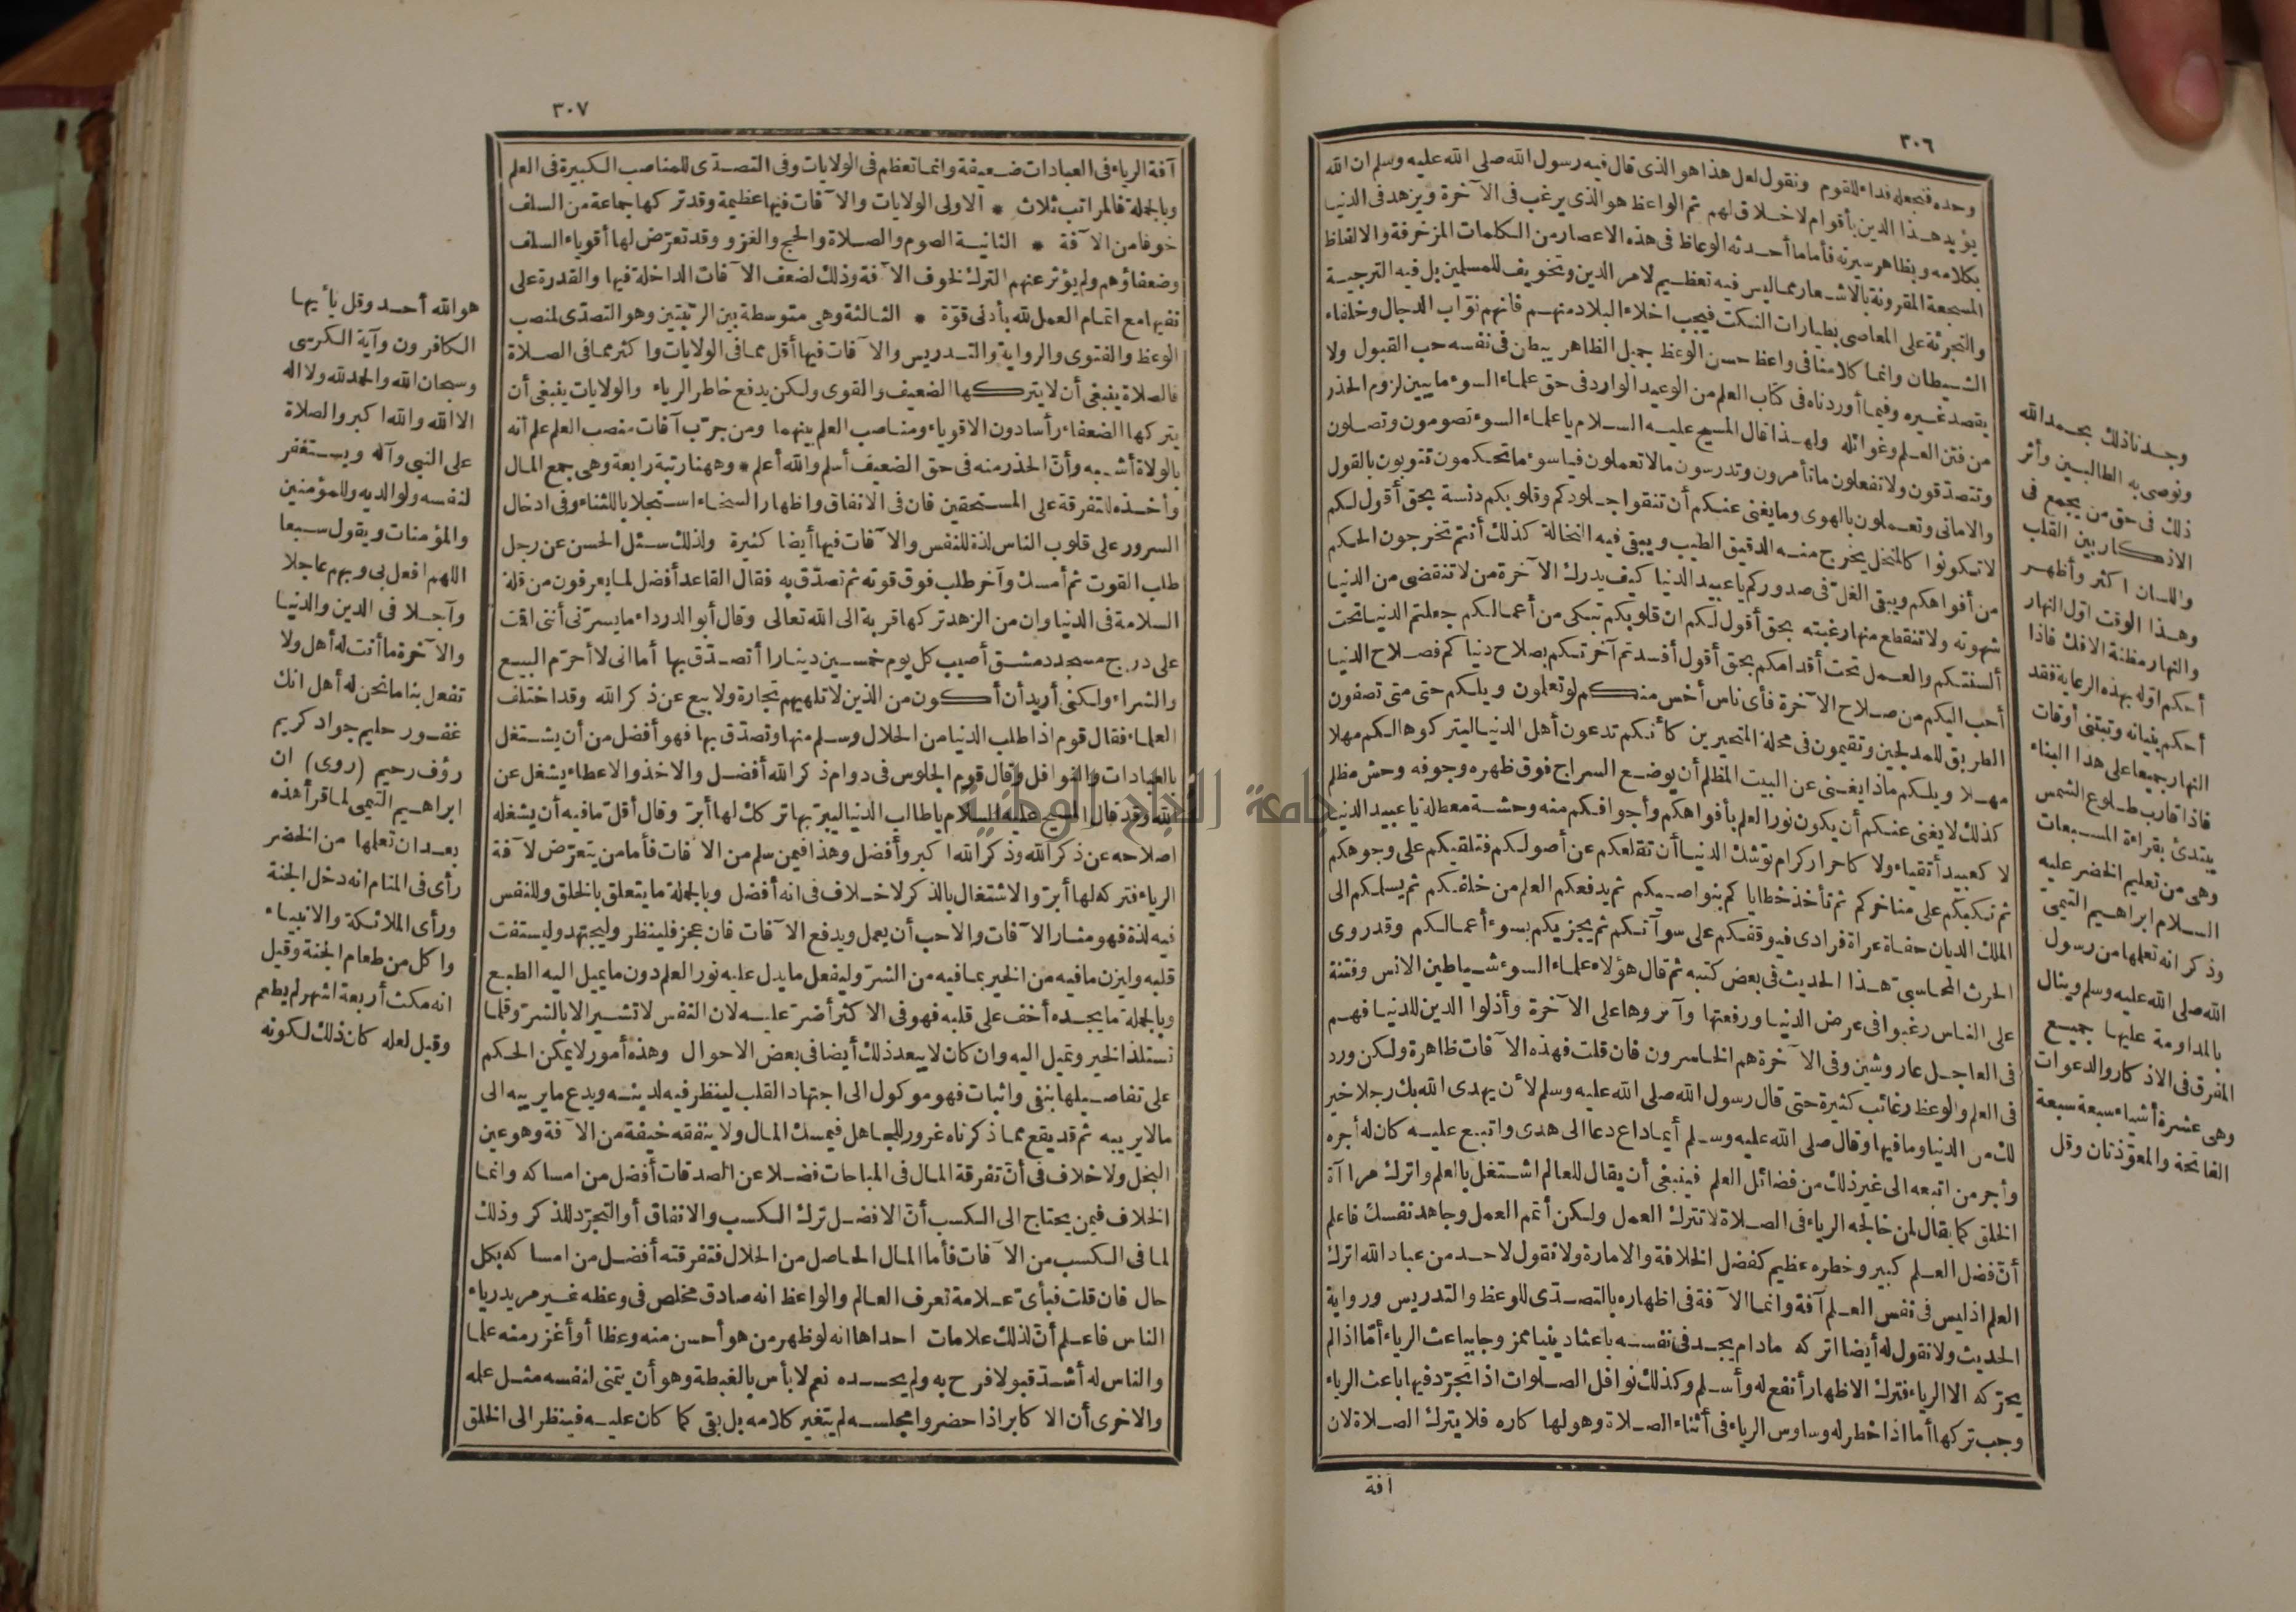 ٣٠٦
وحده فنجعله فداء للقوم ونقول لعل هذا هو الذى قال فيه رسول الله صلى الله عليه وسلم ان الله
يؤيد هذا الدين بأقوام لا خلاق لهم ثم الواعظ هو الذى يرغب فى الآخرة ويزهد فى الدنيا
بكلامه وبظاهر سيرته فأما ما أحدثه الوعاظ فى هذه الاعصار من الكلمات المزخرفة والالفاظ
المسجعة المقرونة بالاشعار مما ليس فيه تعظيم لامر الدين وتخويف للمسلمين بل فيه الترجية
والتجرئة على المعاصى بطيارات النكت فيجب اخلاء البلاد منهم فانهم نوّاب الدجال وخلفاء
الشيطان وانما كلامنا فى واعظ حسن الوعظ جميل الظاهر يبطن فى نفسه حب القبول ولا
يقصد غيره وفيما أوردناه فى كتاب العلم من الوعيد الوارد فى حق علماء السوء ما يبين لزوم الحذر
من فتن العلم وغوائله ولهذا قال المسيح عليه السلام يا علماء السوء تصومون وتصلون
وتتصدّقون ولا تفعلون ما تأمرون وتدرسون مالا تعملون فيا سوء ما تحكمون تتوبون بالقول
والامانى وتعملون بالهوى وما يغنى عنكم أن تنقوا جلودكم وقلوبكم دنسة بحق أقول لكم
لا تكونوا كالمنخل يخرج منه الدقيق الطيب ويبقى فيه النخالة كذلك أنتم تخرجون الحكم
من أفواهكم ويبقى الغلّ فى صدوركم يا عبيد الدنيا كيف يدرك الآخرة من لا تنقضى من الدنيا
شهوته ولا تنقطع منها رغبته بحق أقول لكم ان قلوبكم تبكى من أعمالكم جعلتم الدنيا تحت
ألسنتكم والعمل تحت أقدامكم بحق أقول أفسدتم آخرتكم بصلاح دنياكم فصلاح الدنيا
أحب اليكم من صلاح الآخرة فأى ناس أخس منكم لو تعلمون ويلكم حتى متى تصفون
الطريق للمدلجين وتقيمون فى محلة المتحيرين كأنكم تدعون أهل الدنيا ليتركوها لكم مهلا
مهلا ويلكم ماذا يغنى عن البيت المظلم أن يوضع السراج فوق ظهره وجوفه وحش مظلم
كذلك لا يغنى عنكم أن يكون نور العلم بأفواهكم وأجوافكم منه وحشة معطلة يا عبيد الدنيا
لا كعبيد أتقياء ولا كاحرار كرام توشك الدنيا أن تقلعكم عن أصولكم فتلقيكم على وجوهكم
ثم تكبكم على مناخركم ثم تأخذ خطاياكم بنواصيكم ثم يدفعكم العلم من خلفكم ثم يسلمكم الى
الملك الديان حفاة عراة فرادى فيوقفكم على سوآتكم ثم يجزيكم بسوء أعمالكم وقد روى
الحرث المحاسبىّ هذا الحديث فى بعض كتبه ثم قال هؤلاء علماء السوء شياطين الانس وفتنة
على الناس رغبوا فى عرض الدنيا ورفعتها وآثروها على الآخرة وأذلوا الدين للدنيا فهم
فى العاجل عار وشين وفى الآخرة هم الخاسرون فان قلت فهذه الآفات ظاهرة ولكن ورد
فى العلم والوعظ رغائب كثيرة حتى قال رسول الله صلى الله عليه وسلم لأن يهدى الله بك رجلا خير
لك من الدنيا وما فيها وقال صلى الله عليه وسلم أيما داع دعا الى هدى واتبع عليه كان له أجره
وأجر من اتبعه الى غير ذلك من فضائل العلم فينبغى أن يقال للعالم اشتغل بالعلم واترك مراآة
الخلق كما يقال لمن خالجه الرياء فى الصلاة لا تترك العمل ولكن أتمم العمل وجاهد نفسك فاعلم
أنّ فضل العلم كبير وخطره عظيم كفضل الخلافة والامارة ولا نقول لاحد من عباد الله اترك
العلم اذ ليس فى نفس العلم آفة وانما الآفة فى اظهاره بالتصدّى للوعظ والتدريس ورواية
الحديث ولا نقول له أيضا اتركه مادام يجد فى نفسه باعثا دينيا ممزوجا بباعث الرياء أمّا اذا لم
يحرّكه الا الرياء فترك الاظهار أنفع له وأسلم وكذلك نوافل الصلوات اذا تجرّد فيها باعث الرياء
وجب تركها أما اذا خطر له وساوس الرياء فى أثناء الصلاة وهو لها كاره فلا يترك الصلاة لان
آفة
وجدنا ذلك بحمد الله
ونوصى به الطالبين وأثر
ذلك فى حق من يجمع فى
الاذكار بين القلب
واللسان اكثر وأظهر
وهذا الوقت اوّل النهار
والنهار مظنة الافك فاذا
أحكم اوّله بهذه الرعاية فقد
أحكم بنيانه وتبتنى أوقات
النهار جميعا على هذا البناء
فاذا قارب طلوع الشمس
يبتدئ بقراءة المسبعات
وهى من تعليم الخضر عليه
السلام ابراهيم التيمى
وذكر انه تعلمها من رسول
الله صلى الله عليه وسلم وينال
بالمداومة عليها جميع
المفرق فى الاذكار والدعوات
وهى عشرة أشياء سبعة سبعة
الفاتحة والمعوّذتان وقل
٣٠٧
آفة الرياء فى العبادات ضعيفة وانما تعظم فى الولايات وفى التصدّى للمناصب الكبيرة فى العلم
وبالجملة فالمراتب ثلاث * الاولى الولايات والآفات فيها عظيمة وقد تركها جماعة من السلف
خوفا من الآفة * الثانية الصوم والصلاة والحج والغزو وقد تعرّض لها أقوياء السلف
وضعفاؤهم ولم يؤثر عنهم الترك لخوف الآفة وذلك لضعف الآفات الداخلة فيها والقدرة على
نفيها مع اتمام العمل لله بأدنى قوّة * الثالثة وهى متوسطة بين الرتبتين وهو التصدّى لمنصب
الوعظ والفتوى والرواية والتدريس والآفات فيها أقل مما فى الولايات واكثر مما فى الصلاة
فالصلاة ينبغى أن لا يتركها الضعيف والقوى ولكن يدفع خاطر الرياء والولايات ينبغى أن
يتركها الضعفاء رأسا دون الاقوياء ومناصب العلم بينهما ومن جرّب آفات منصب العلم علم أنه
بالولاة أشبه وأنّ الحذر منه فى حق الضعيف أسلم والله أعلم * وههنا رتبة رابعة وهى جمع المال
وأخذه للتفرقة على المستحقين فان فى الانفاق واظهار السخاء استجلابا للثناء وفى ادخال
السرور على قلوب الناس لذة للنفس والآفات فيها أيضا كثيرة ولذلك سئل الحسن عن رجل
طلب القوت ثم أمسك وآخر طلب فوق قوته ثم تصدّق به فقال القاعد أفضل لما يعرفون من قلة
السلامة فى الدنيا وان من الزهد تركها قربة الى الله تعالى وقال أبو الدرداء ما يسرّنى أننى اقمت
على درج مسجد دمشق أصيب كل يوم خمسين دينارا أتصدّق بها أما انى لا أحرّم البيع
والشراء ولكنى أريد أن أكون من الذين لا تلهيهم تجارة ولا بيع عن ذكر الله وقد اختلف
العلماء فقال قوم اذا طلب الدنيا من الحلال وسلم منها وتصدّق بها فهو أفضل من أن يشتغل
بالعبادات والنوافل وقال قوم الجلوس فى دوام ذكر الله أفضل والاخذ والاعطاء يشغل عن
الله وقد قال المسيح عليه السلام يا طالب الدنيا ليبرّ بها تركك لها أبرّ وقال أقلّ ما فيه أن يشغله
اصلاحه عن ذكر الله وذكر الله اكبر وأفضل وهذا فيمن سلم من الآفات فأما من يتعرّض لآفة
الرياء فتركه لها أبرّ والاشتغال بالذكر لا خلاف فى انه أفضل وبالجملة ما يتعلق بالخلق وللنفس
فيه لذة فهو مثار الآفات والاحب أن يعمل ويدفع الآفات فان عجز فلينظر وليجتهد وليستفت
قلبه وليزن ما فيه من الخير بما فيه من الشرّ وليفعل ما يدل عليه نور العلم دون ما يميل اليه الطبع
وبالجملة ما يجده أخف على قلبه فهو فى الاكثر أضرّ عليه لان النفس لا تشير الا بالشرّ وقلما
تستلذ الخير وتميل اليه وان كان لا يبعد ذلك أيضا فى بعض الاحوال وهذه أمور لا يمكن الحكم
على تفاصيلها بنفى واثبات فهو موكول الى اجتهاد القلب لينظر فيه لدينه ويدع ما يريبه الى
مالا يريبه ثم قد يقع مما ذكرناه غرور للجاهل فيمسك المال ولا ينفقه خيفة من الآفة وهو عين
البخل ولا خلاف فى أنّ تفرقة المال فى المباحات فضلا عن الصدقات أفضل من امساكه وانما
الخلاف فيمن يحتاج الى الكسب أنّ الافضل ترك الكسب والانفاق أو التجرّد للذكر وذلك
لما فى الكسب من الآفات فأما المال الحاصل من الحلال فتفرقته أفضل من امساكه بكل
حال فان قلت فبأىّ علامة تعرف العالم والواعظ انه صادق مخلص فى وعظه غير مريد رياء
الناس فاعلم أنّ لذلك علامات احداها انه لو ظهر من هو أحسن منه وعظا أو أغزر منه علما
والناس له أشدّ قبولا فرح به ولم يحسده نعم لا بأس بالغبطة وهو أن يتمنى لنفسه مثل علمه
والاخرى أن الاكابر اذا حضروا مجلسه لم يتغير كلامه بل بقى كما كان عليه فينظر الى الخلق
هو الله أحد وقل يا أيها
الكافرون وآية الكرسى
وسبحان الله والحمد لله ولا اله
الا الله والله اكبر والصلاة
على النبى وآله ويستغفر
لنفسه ولوالديه وللمؤمنين
والمؤمنات ويقول سبعا
اللهم افعل بى وبهم عاجلا
وآجلا فى الدين والدنيا
والآخرة ما أنت له أهل ولا
تفعل بنا ما نحن له أهل انك
غفور حليم جواد كريم
رؤف رحيم (روى) ان
ابراهيم التيمى لما قرأ هذه
بعد ان تعلمها من الخضر
رأى فى المنام انه دخل الجنة
ورأى الملائكة والانبياء
واكل من طعام الجنة وقيل
انه مكث أربعة اشهر لم يطعم
وقيل لعله كان ذلك لكونه
جامعة النجاح الوطنية